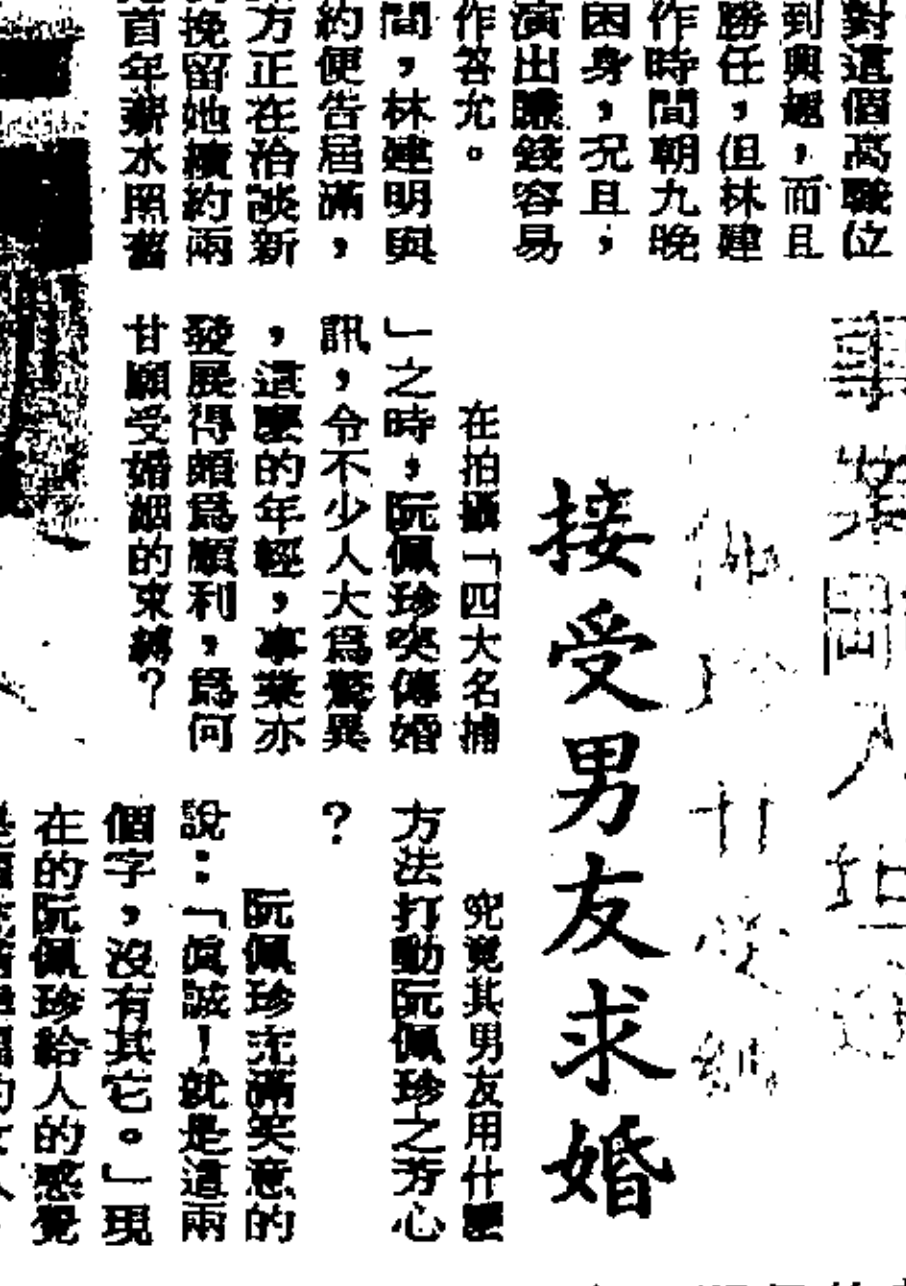 對這個高職位
到興趣，而且
勝任，但林建
作時間朝九晚
困身，況且，
演出賺錢容易
作答允。
間，林建明與
約便告屆滿，
方正在洽談新
挽留她續約兩
首年薪水照舊
接受男友求婚
在拍攝「四大名捕
」之時，阮佩珍突傳婚
訊，令不少人大爲驚異
，這麼的年輕，事業亦
發展得頗爲順利，爲何
甘願受婚姻的束縛？
究竟其男友用什麼
方法打動阮佩珍之芳心
？
阮佩珍充滿笑意的
說：「眞誠！就是這兩
個字，沒有其它。」現
在的阮佩珍給人的感覺